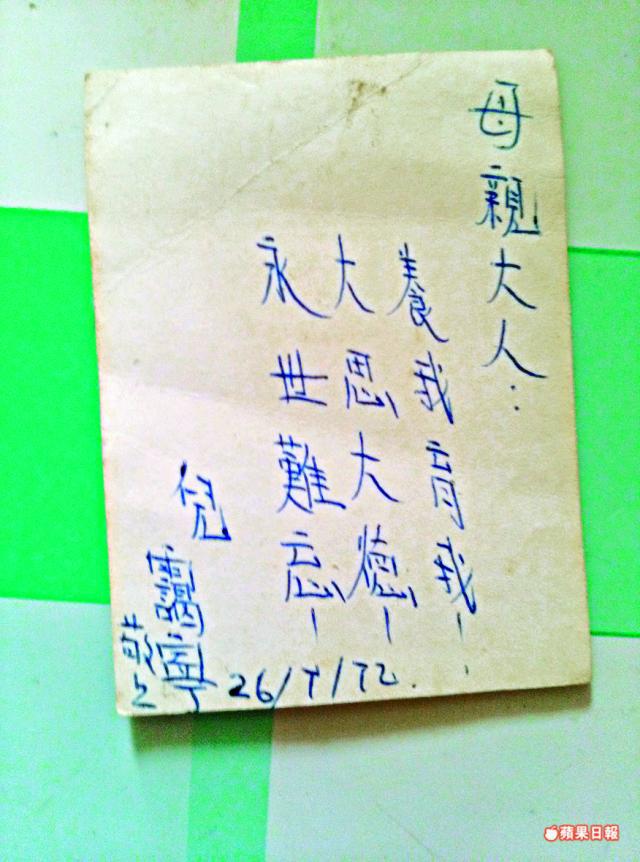 母親大人：
養我育我！
大恩大德！
永世難忘！
兒
靄寧
敬上
26/7/72.
蘋果日報